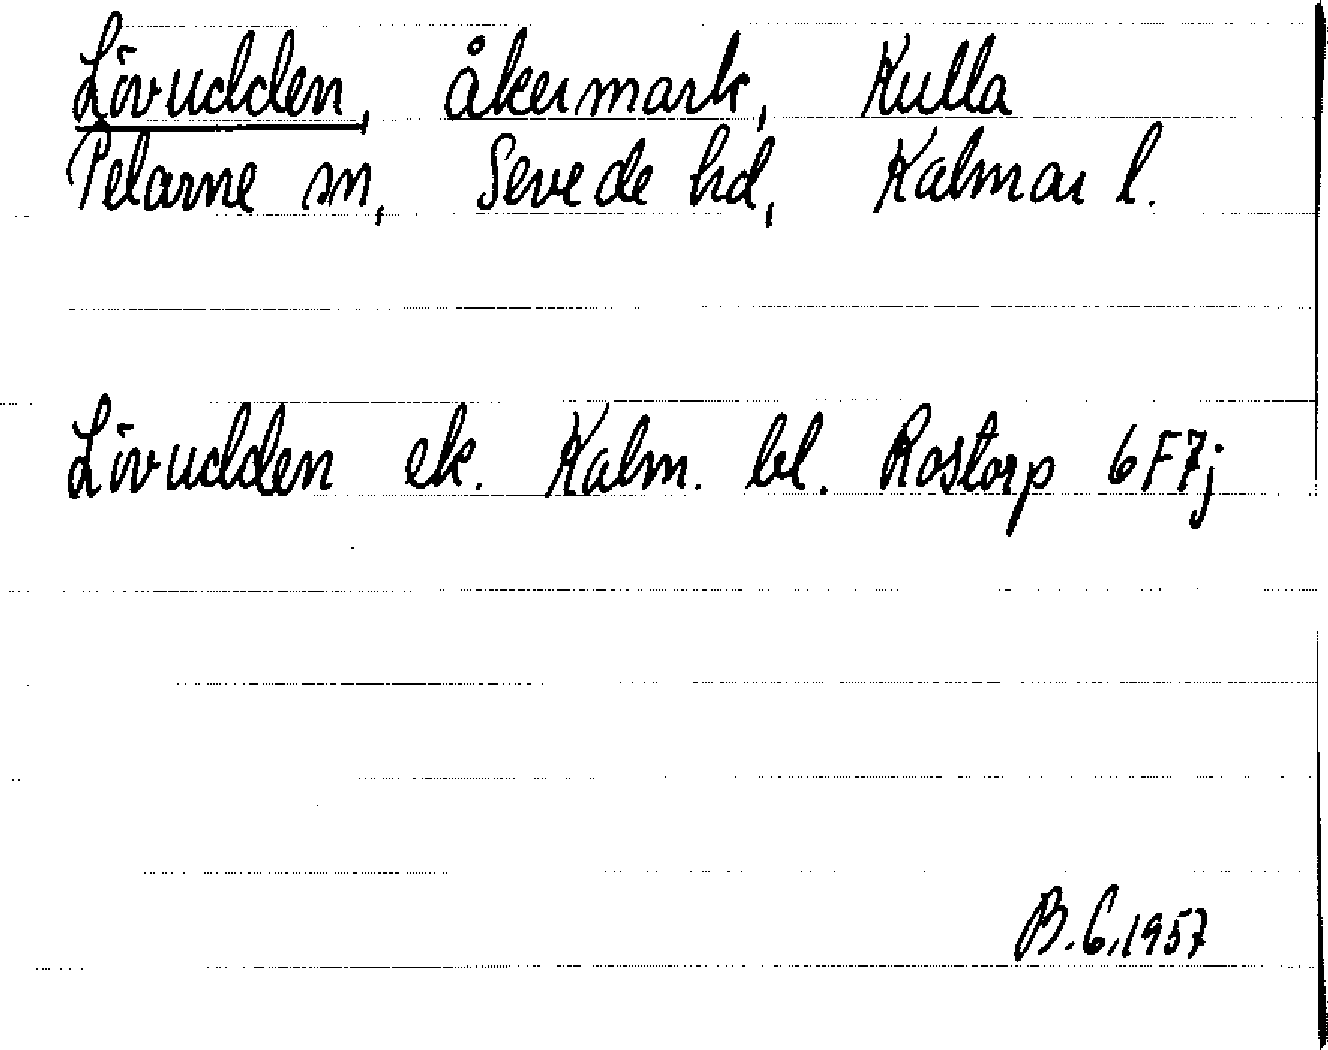 Lövudden, åkermark, Kulla
Pelarne sn, Sevede hd, Kalmar l.
Lövudden ek. Kalm. bl. Rostorp 6F7j
B.G.1957